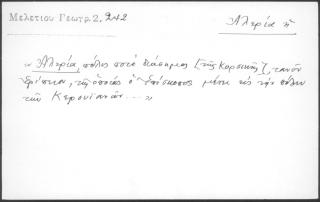 Μελετίου Γεωγρ. 2. 242
Αλερία ἡ
« Αλερία, πόλις ποτέ διάσημος [τῆς Κορσικῆς], τανῦν
ἐρίπεια, τῆς ὁποίας ὁ ἐπίσκοπος μένει εἰς τὴν πόλιν
τῶν Κερουϊανῶν ... »